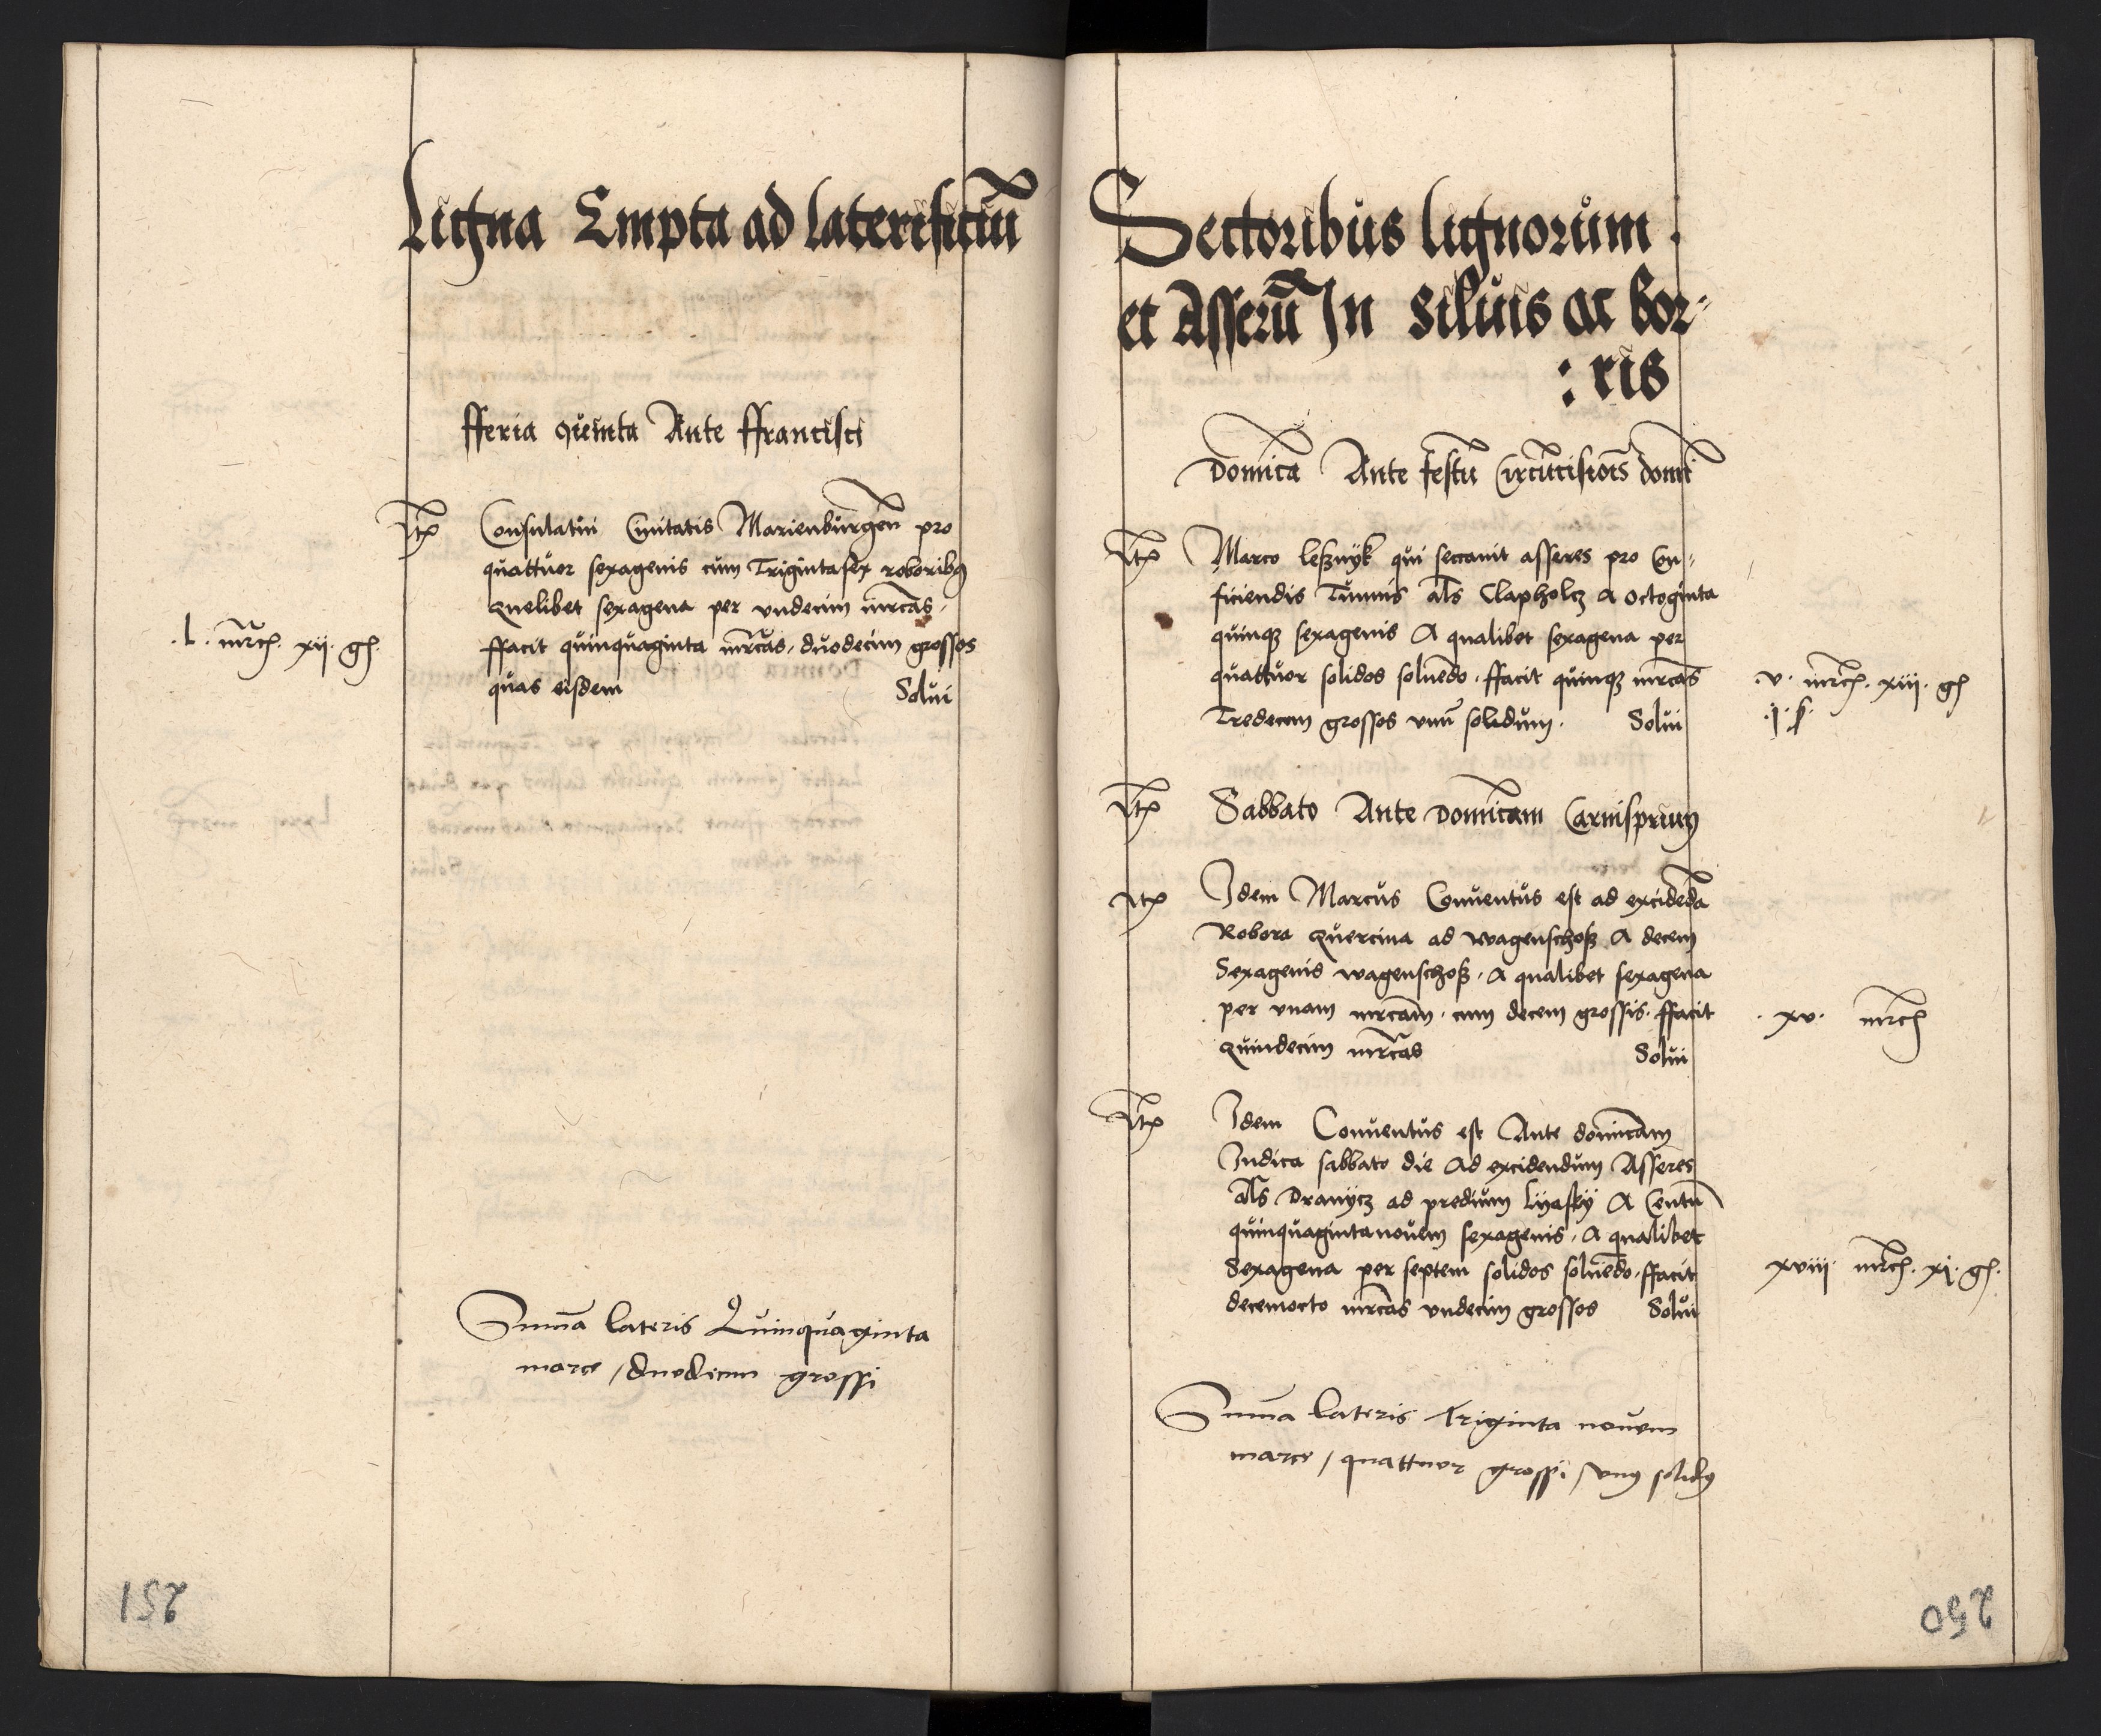 Ligna Empta ad laterificiū
fferia quinta Ante ffrancisci
Itē Consulatui Ciuitatis Marienburgeñ pro
quattuor sexagenis cum Trigintasex roboribȝ
quelibet sexagena per vndecim mrcas.
ffacit quinquaginta mrcas. duodecim grossos
.l. mrcʒ xij. gʒ.
quas eisdem Solui
Sum̄a lateris Quinquaginta
marce / duodicim grossi
251
Sectoribus lignorum
et Asserū In Siluis ac bor=
:ris
Domīca Ante festū Circūcisiois domī
Itē Marco leßnÿk qui seccauit asseres pro Con=
ficiendis Tunnis als Clapholcz a octoginta
quinqȝ sexagenis A qualibet sexagena per
quattuor solidos soluēdo. ffacit quinqȝ mrcas
.v. mrcʒ. xiij. gʒ
Tredecem grossos vnū solidum. Solui
.j. s.
Itē Sabbato Ante Domīcam Carnispriuȝ
Itē Idem Marcus Conuentus est ad excidēda
Robora quercina ad wagenschoß A decem
Sexagenis wagenschoß. A qualibet sexagena
per vnam mrcam. cum decem grossis. ffacit
. xv. mrcʒ
quindecim mrcas Solui
Itē Idem Conuentus est Ante domīcam
Iudica sabbato die Ad excidendum Asseres
als Dranÿcz ad predium lÿaskÿ A Centū
quinquagintanouem sexagenis. A qualibet
Sexagena per septem solidos soluēdo. ffacit
xviij mrcʒ. xj. gʒ.
decemocto mrcas vndecim grossos Solui
Sum̄a lateris Triginta nouem
marce / quattuor grossi / vnȝ solidȝ
250